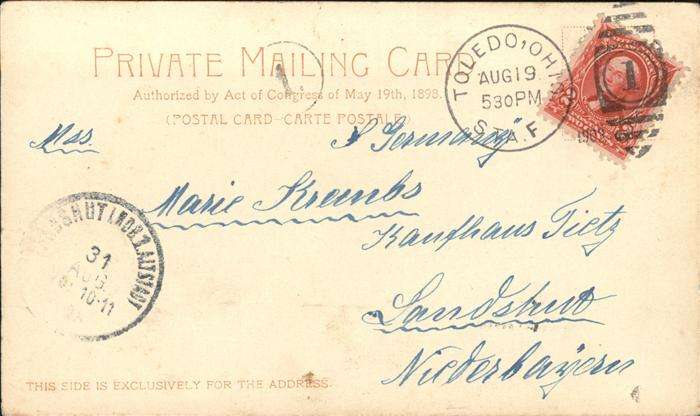 PRIVATE MAILING CARD
Authorized by Act of Congress of May 19th, 1898.
(POSTAL CARD-CARTE POSTALE)
TOLEDO, OHIO
AUG 19
530PM
STA. F
1
1
"Germany"
Marie Krembs
Kaufhaus Tietz
Landshut
Niederbayern
31
AUG.
10-11
THIS SIDE IS EXCLUSIVELY FOR THE ADDRESS.